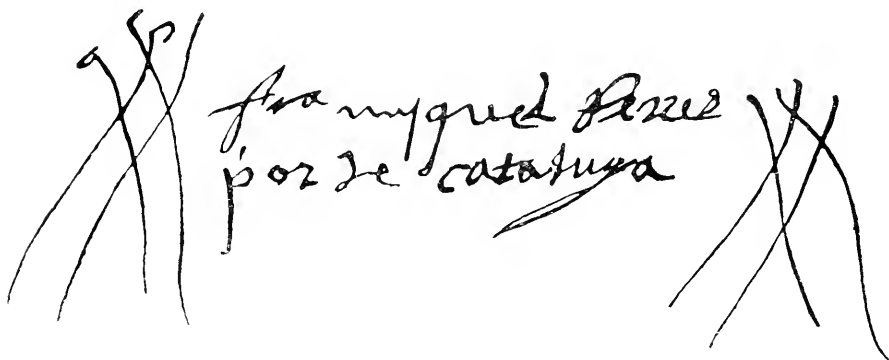 fra myguel Perres
por de cataluya